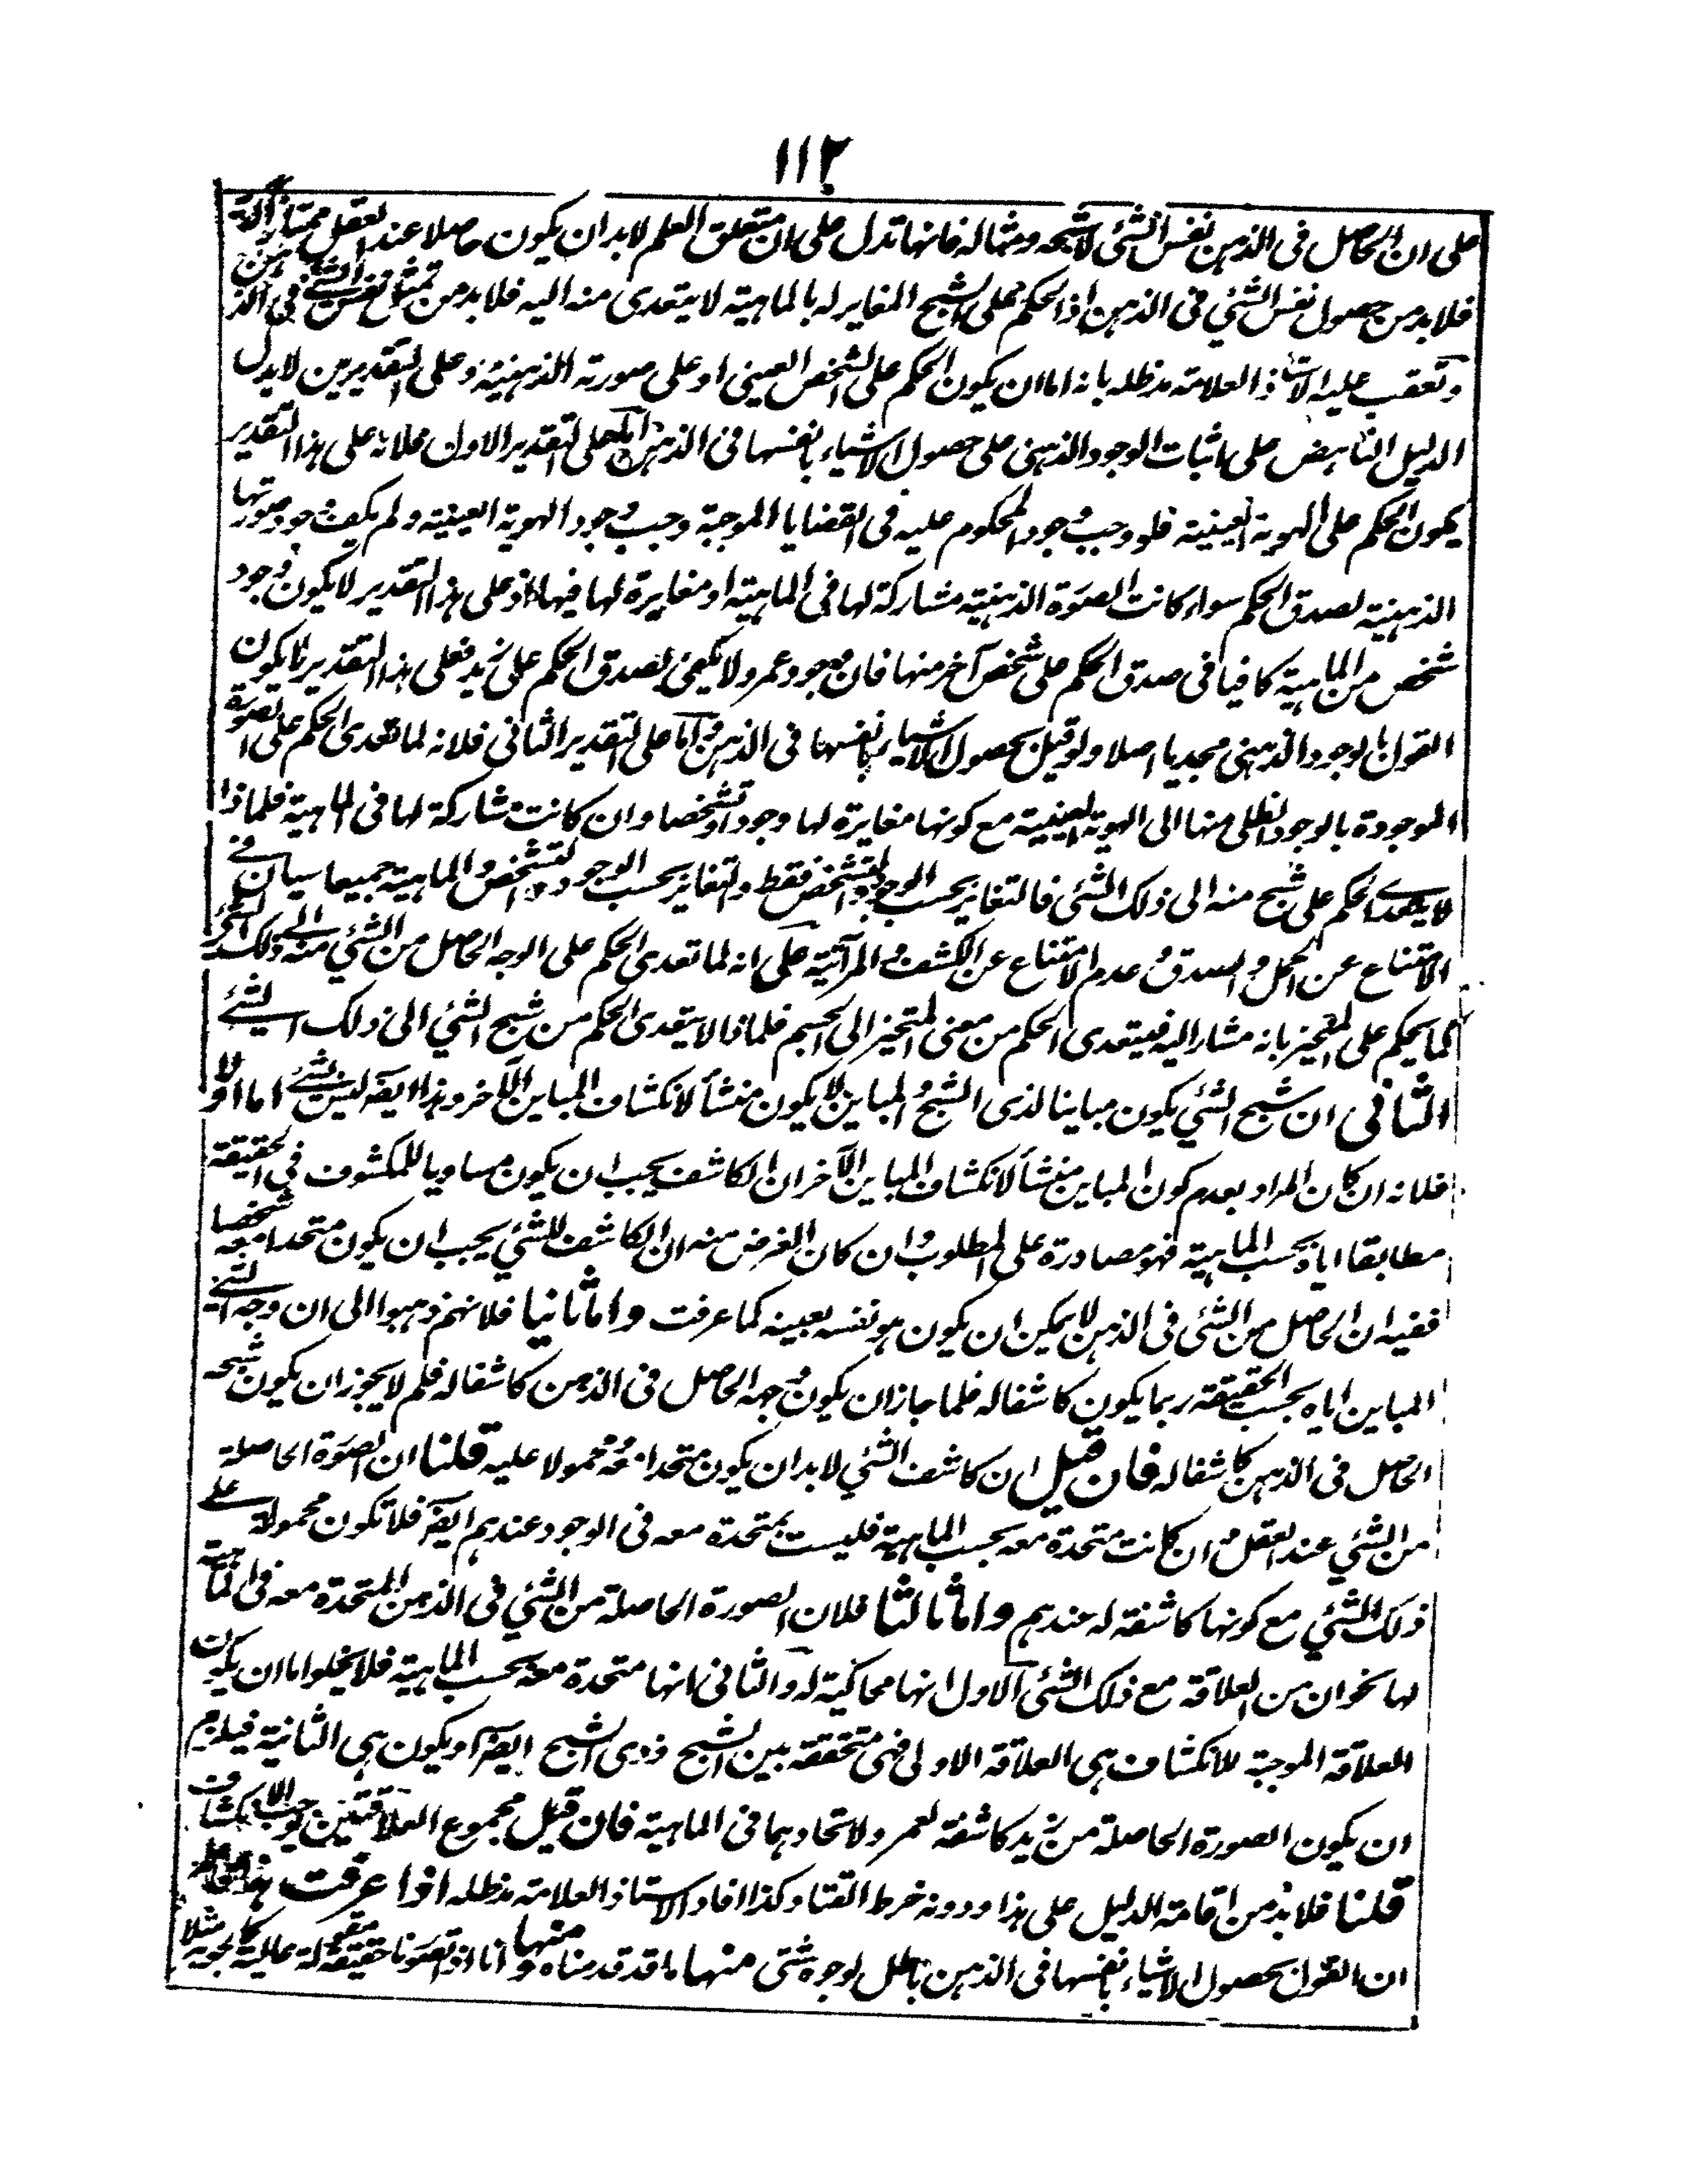 ١١٢
على ان الحاصل فى الذهن نفس الشئ لا شبحه ومثاله فانها تدل على ان متعلق العلم لابد ان يكون حاصلا عند العقل ممتازا
فلابد من حصول نفس الشئ فى الذهن اذ الحكم على الشبح المغاير له بالماهية لا يتعدى منه اليه فلابد من تمثل نفس الشئ فى الذهن
وتعقب عليه الاستاذ العلامة مدظله بانه اما ان يكون الحكم على الشخص العينى او على صورته الذهنية وعلى التقديرين لا يدل
الدليل الناهض على اثبات الوجود الذهنى على حصول الاشياء بانفسها فى الذهن اما على التقدير الاول فلانه على هذا التقدير
يكون الحكم على الهوية العينية فلو وجب وجود المحكوم عليه فى القضايا الموجبة وجب وجود الهوية العينية ولم يكف وجود صورتها
الذهنية لصدق الحكم سواء كانت الصورة الذهنية مشاركة لها فى الماهية او مغايرة لها فيها اذ على هذا التقدير لا يكون وجود
شخص من الماهية كافيا فى صدق الحكم على شخص آخر منها فان وجود عمرو لا يكفى لصدق الحكم على زيد فعلى هذا التقدير لا يكون
القول بالوجود الذهنى مجديا اصلا ولو قيل بحصول الاشياء بانفسها فى الذهن واما على التقدير الثانى فلانه لما تعدى الحكم على الصورة
الموجودة بالوجود الظلى منها الى الهوية العينية مع كونها مغايرة لها وجودا وتشخصا وان كانت مشاركة لها فى الماهية فلماذا
لا يتعدى الحكم على شبح منه الى ذلك الشئ فالتغاير بحسب الوجود والتشخص فقط والتغاير بحسب الوجود والتشخص والماهية جميعا سيان فى
الامتناع عن الحمل والصدق وعدم الامتناع عن الكشف والمرآتية على انه لما تعدى الحكم على الوجه الحاصل من الشئ منه الى ذلك الشئ
كما يحكم على المتحيز بانه مشار اليه فيتعدى الحكم من معنى المتحيز الى الجسم فلماذا لا يتعدى الحكم من شبح الشئ الى ذلك الشئ
الثانى ان شبح الشئ يكون مباينا لذى الشبح والمباين لا يكون منشأ لانكشاف المباين الآخر وهذا ايضا ليس بشئ اما اولا
فلانه ان كان المراد بعدم كون المباين منشأ لانكشاف المباين الآخر ان الكاشف يجب ان يكون مساويا للمكشوف فى الحقيقة
مطابقا اياه بحسب الماهية فهو مصادرة على المطلوب وان كان الغرض منه ان الكاشف للشئ يجب ان يكون متحدا معه شخصا
ففيه ان الحاصل من الشئ فى الذهن لا يمكن ان يكون هو نفسه بعينه كما عرفت واما ثانيا فلانهم ذهبوا الى ان وجه الشئ
المباين اياه بحسب الحقيقة ربما يكون كاشفا له فلما جاز ان يكون وجهه الحاصل فى الذهن كاشفا له فلم لا يجوز ان يكون شبحه
الحاصل فى الذهن كاشفا له فان قيل ان كاشف الشئ لابد ان يكون متحدا معه محمولا عليه قلنا ان الصورة الحاصلة
من الشئ عند العقل وان كانت متحدة معه بحسب الماهية فليست بمتحدة معه فى الوجود عندهم ايضا فلا تكون محمولة على
ذلك الشئ مع كونها كاشفة له عندهم واما ثالثا فلان الصورة الحاصلة من الشئ فى الذهن المتحدة معه فى الماهية
لها نحوان من العلاقة مع ذلك الشئ الاول انها محاكية له والثانى انها متحدة معه بحسب الماهية فلا يخلو اما ان يكون
العلاقة الموجبة للانكشاف هى العلاقة الاولى فهى متحققة بين الشبح وذى الشبح ايضا او يكون هى الثانية فيلزم
ان يكون الصورة الحاصلة من زيد كاشفة لعمرو لاتحادهما فى الماهية فان قيل مجموع العلاقتين يوجب الانكشاف
قلنا فلابد من اقامة الدليل على هذا ودونه خرط القتاد كذا افاد الاستاذ العلامة مدظله اذا عرفت هذا
ان القول بحصول الاشياء بانفسها فى الذهن باطل لوجوه شتى منها ما قد قدمناه ومنها انا اذا تصورنا حقيقة مقولة عالية كالجوهر مثلا